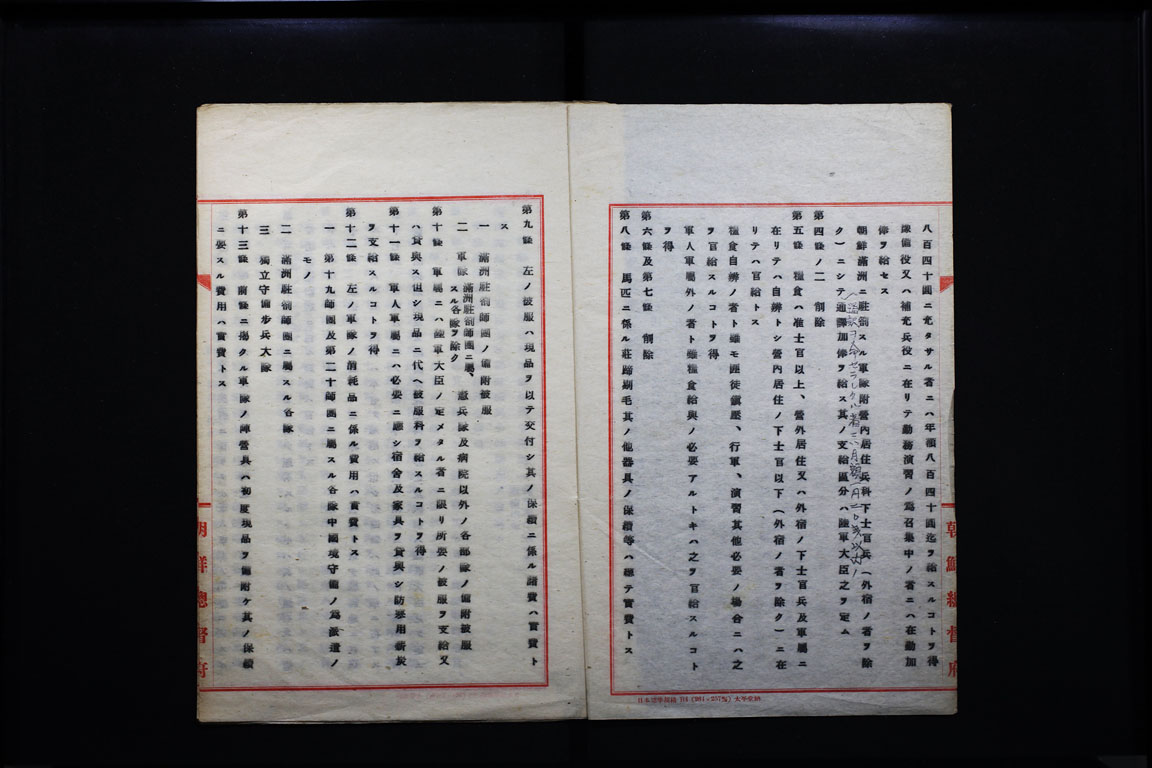 八百四十圓ニ充タサル者ニハ年額八百四十圓迄ヲ給スルコトヲ得
豫備役又ハ補充兵役ニ在リテ勤務演習ノ爲召集中ノ者ニハ在勤加
俸ヲ給セス
朝鮮滿洲ニ駐劄スル軍隊附營内居住兵科下士官兵(外宿ノ者ヲ除
ク)ニシテ通譯加俸ヲ給ス其ノ支給區分ハ陸軍大臣之ヲ定ム
第四條ノ二 削除
第五條 糧食ハ准士官以上、營外居住又ハ外宿ノ下士官兵及軍屬ニ
在リテハ自辨トシ營内居住ノ下士官以下(外宿ノ者ヲ除ク)ニ在
リテハ官給トス
糧食自辨ノ者ト雖モ匪徒鎭壓、行軍、演習其他必要ノ場合ニハ之
ヲ官給スルコトヲ得
軍人軍屬外ノ者ト雖糧食給與ノ必要アルトキハ之ヲ官給スルコト
ヲ得
第六條及第七條 削除
第八條 馬匹ニ係ル裝蹄剔毛其ノ他器具ノ保續等ハ總テ實費トス
日本標準規格
朝鮮總督府
第九條 左ノ被服ハ現品ヲ以テ交付シ其ノ保續ニ係ル諸費ハ實費ト
ス
一 滿洲駐劄師團ノ備附被服
二 軍隊(滿洲駐劄師團ニ屬スル各隊ヲ除ク)、憲兵隊及病院以外ノ各部隊ノ備附被服
第十條 軍屬ニハ陸軍大臣ノ定メタル者ニ限リ所要ノ被服ヲ支給又
ハ貸與ス但シ現品ニ代ヘ被服料ヲ給スルコトヲ得
第十一條 軍人軍屬ニハ必要ニ應シ宿舍及家具ヲ貸與シ防寒用薪炭
ヲ支給スルコトヲ得
第十二條 左ノ軍隊ノ消耗品ニ係ル費用ハ實費トス
一 第十九師團及第二十師團ニ屬スル各隊中國境守備ノ爲派遣ノ
モノ
二 滿洲駐劄師團ニ屬スル各隊
三 獨立守備步兵大隊
第十三條 前條ニ揭クル軍隊ノ陣營具ハ初度現品ヲ備附ケ其ノ保續
ニ要スル費用ハ實費トス
朝鮮總督府